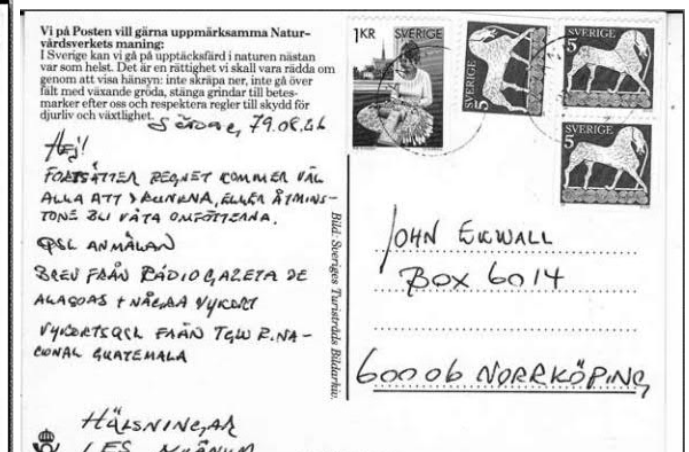 Vi på Posten vill gärna uppmärksamma Natur-
vårdsverkets maning:
I Sverige kan vi gå på upptäcksfärd i naturen nästan
var som helst. Det är en rättighet vi skall vara rädda om
genom att visa hänsyn: inte skräpa ner, inte gå över
fält med växande gröda, stänga grindar till betes-
marker efter oss och respektera regler till skydd för
djurliv och växtlighet.
79.08.26
Hej!
FORTSÄTTER REGNET KOMMER VÄL
ALLA ATT DRUNKNA, ELLER ÅTMINS-
TONE BLI VÅTA OM FÖTTERNA.
QSL ANMÄLAN
BREV FRÅN RADIO GAZETA DE
ALAGOAS + NÅGRA VYKORT
VYKORTSQSL FRÅN TGW R.NA-
CIONAL GUATEMALA
HÄLSNINGAR
Bild: Sveriges Turistråds Bildarkiv.
1KR SVERIGE
SVERIGE 5
SVERIGE 5
SVERIGE 5
JOHN EKWALL
BOX 6014
60006 NORRKÖPING